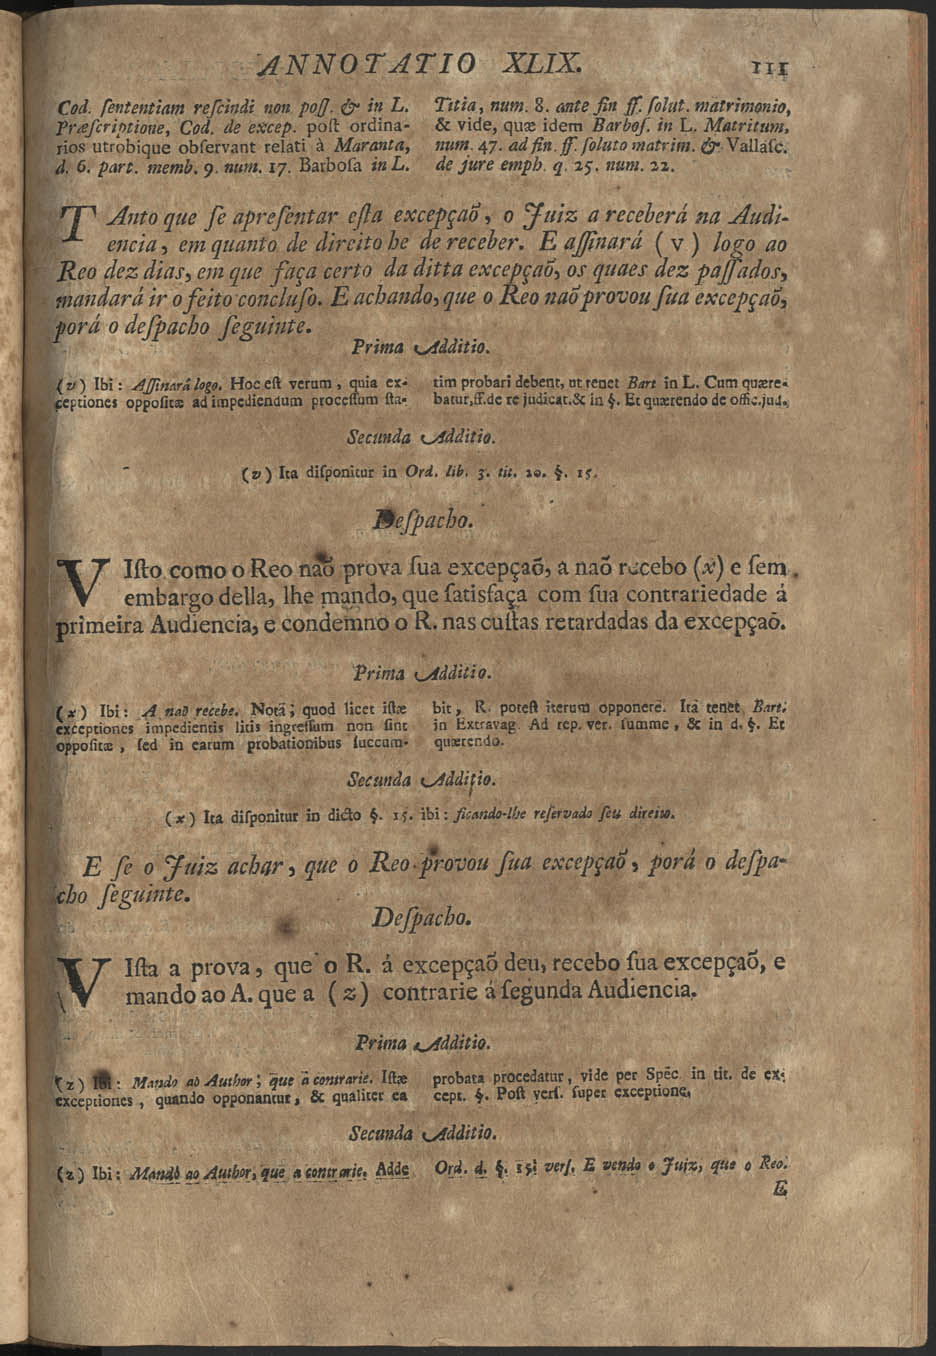 ANNOTATIO XLIX. 111
Cod. ſententiam reſcindi non poſſ. & in L.
Præſcriptione, Cod. de excep. poſt ordina-
rios utrobique obſervant relati à Maranta,
d. 6. part. memb. 9. num. 17. Barboſa in L.
Titia, num. 8. ante fin ff. ſolut. matrimonio,
& vide, quæ idem Barboſ. in L. Matritum,
num. 47. ad fin. ff. ſoluto matrim. & Vallaſc.
de jure emph. q. 25. num. 22.
TAnto que ſe apreſentar eſta excepçaõ, o Juiz a receberá na Audi-
encia, em quanto de direito he de receber. E aſſinará (v) logo ao
Reo dez dias, em que faça certo da ditta excepçaõ, os quaes dez paſſados,
mandará ir o feito concluſo. E achando, que o Reo naõ provou ſua excepçaõ,
porá o deſpacho ſeguinte.
Prima Additio.
(v) Ibi: Aſſinará logo. Hoc eſt verum, quia ex-
ceptiones oppoſitæ ad impediendum proceſſum ſta-
tim probari debent, ut tenet Bart in L. Cum quære-
batur, ff. de re judicat. & in §. Et quærendo de offic. jud.
Secunda Additio.
(v) Ita diſponitur in Ord. lib. 3. tit. 20. §. 15.
Deſpacho.
VIſto como o Reo naõ prova ſua excepçaõ, a naõ recebo (x) e ſem
embargo della, lhe mando, que ſatisfaça com ſua contrariedade á
primeira Audiencia, e condemno o R. nas cuſtas retardadas da excepçaõ.
Prima Additio.
(x) Ibi: A naõ recebe. Notā; quod licet iſtæ
exceptiones impedientis litis ingreſſum non ſint
oppoſitæ, ſed in earum probationibus ſuccum-
bit, R. poteſt iterum opponere. Ita tenet Bart.
in Extravag. Ad rep. ver. ſumme, & in d. §. Et
quærendo.
Secunda Additio.
(x) Ita diſponitur in dicto §. 15. ibi: ficando-lhe reſervado ſeu direito.
E ſe o Juiz achar, que o Reo provou ſua excepçaõ, porá o deſpa-
cho ſeguinte.
Deſpacho.
VIſta a prova, que o R. á excepçaõ deu, recebo ſua excepçaõ, e
mando ao A. que a (z) contrarie á ſegunda Audiencia.
Prima Additio.
(z) Ibi: Mando ao Author; que a contrarie. Iſtæ
exceptiones, quando opponantur, & qualiter ea
probata procedatur, vide per Spēc. in tit. de ex-
cept. §. Poſt verſ. ſuper exceptione,
Secunda Additio.
(z) Ibi: Mando ao Author, que a contrarie. Adde
Ord. d. §. 15. verſ. E vendo o Juiz, que o Reo.
E